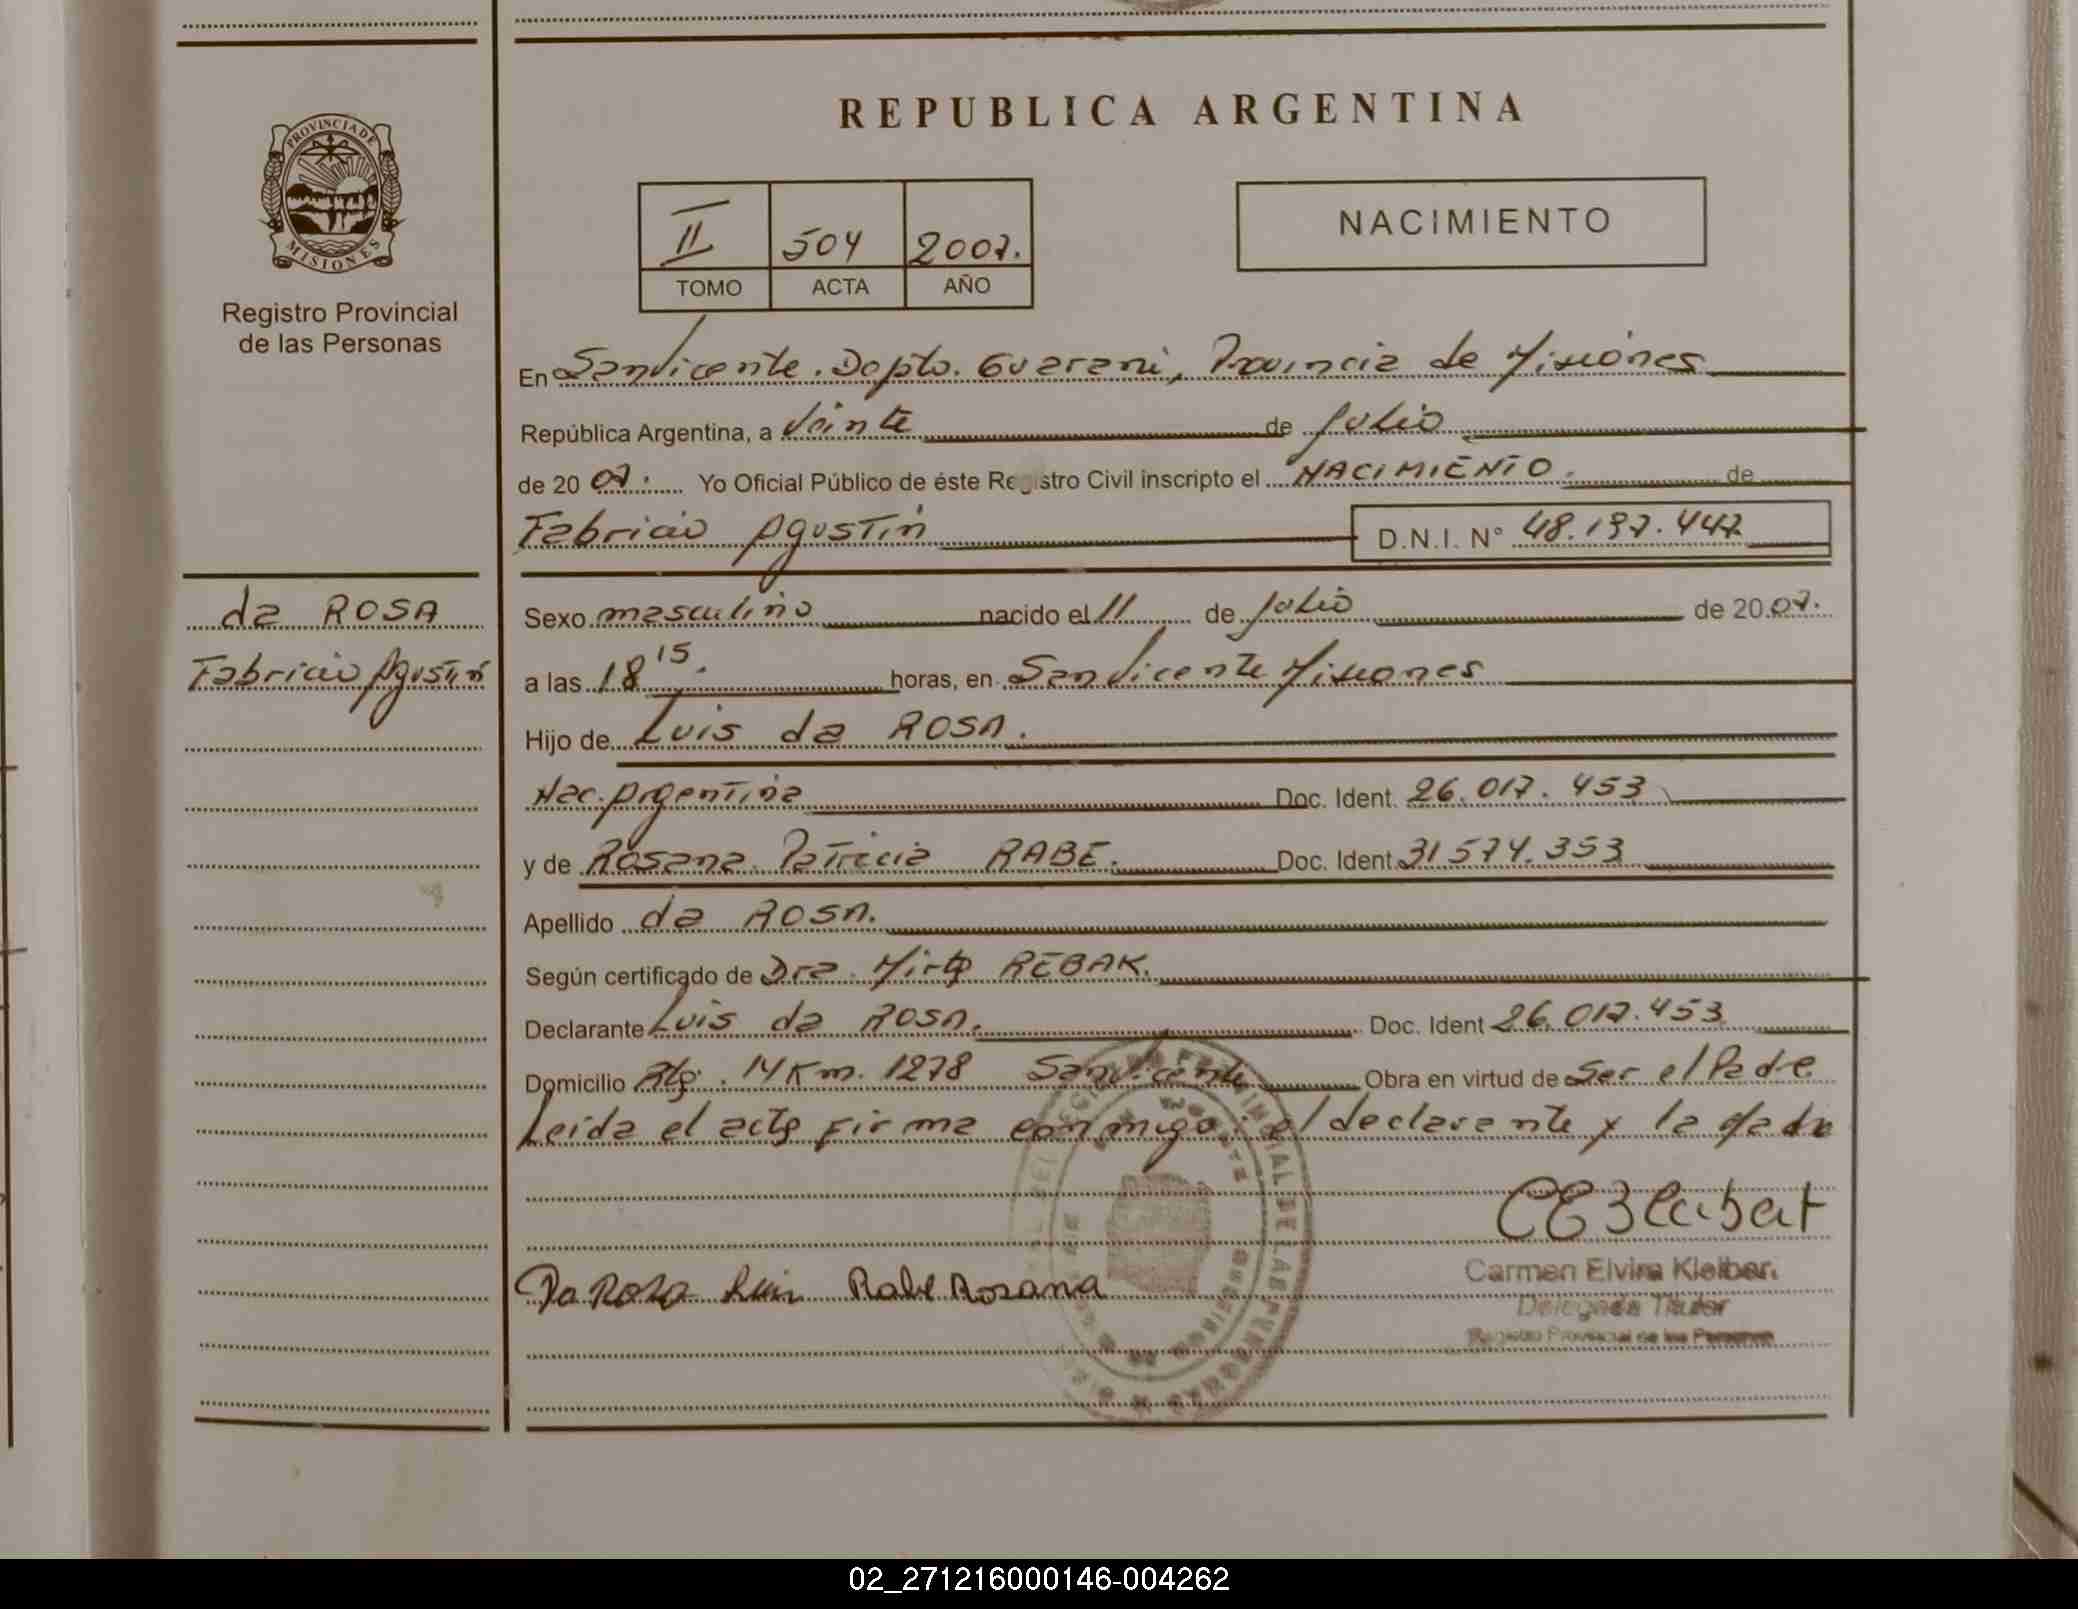 REPUBLICA ARGENTINA
PROVINCIA DE
MISIONES
Registro Provincial
de las Personas
II 504 2007.
TOMO ACTA AÑO
NACIMIENTO
En San Vicente. Dpto. Guarani, Provincia de Misiones
República Argentina, a Veinte de Julio
de 20 07. Yo Oficial Público de éste Registro Civil inscripto el NACIMIENTO. de
Fabricio Agustin D.N.I. N° 48.197.447
da ROSA
Fabricio Agustin
Sexo masculino nacido el 11 de Julio de 20 07.
a las 18 15. horas, en San Vicente Misiones
Hijo de Luis da ROSA.
Nac. Argentina Doc. Ident. 26.017.453
y de Rosana Patricia RABE. Doc. Ident. 31.574.353
Apellido da ROSA.
Según certificado de Dra. Mirta REBAK.
Declarante Luis da ROSA. Doc. Ident 26.017.453
Domicilio Rta. 14 Km. 1278 San Vicente Obra en virtud de Ser el Padre
Leida el acta firma conmigo el declarante y la Madre
Da Rosa Luis Rabe Rosana
Carmen Elvira Kleiber
Delegada Titular
Registro Provincial de las Personas
02_271216000146-004262